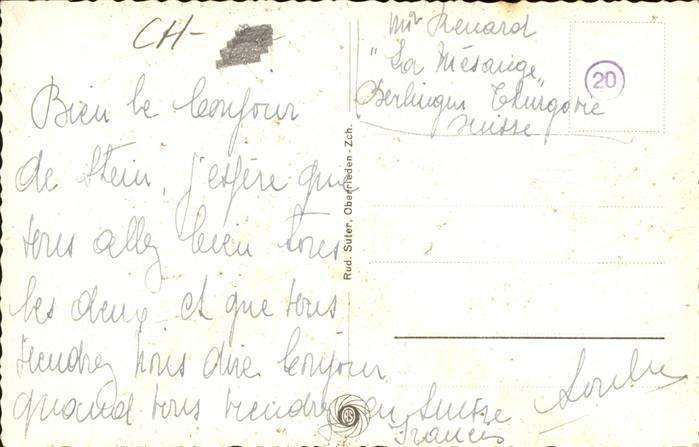 CH-
Bien le bonjour
de Stein, j'espère que
vous allez bien tous
les deux et que vous
viendrez nous dire bonjour
quand vous viendrez en Suisse
Francis
Mr Renard
"La Mésange"
Berlingen Thurgovie
Suisse
20
Rud. Suter, Oberrieden - Zch.